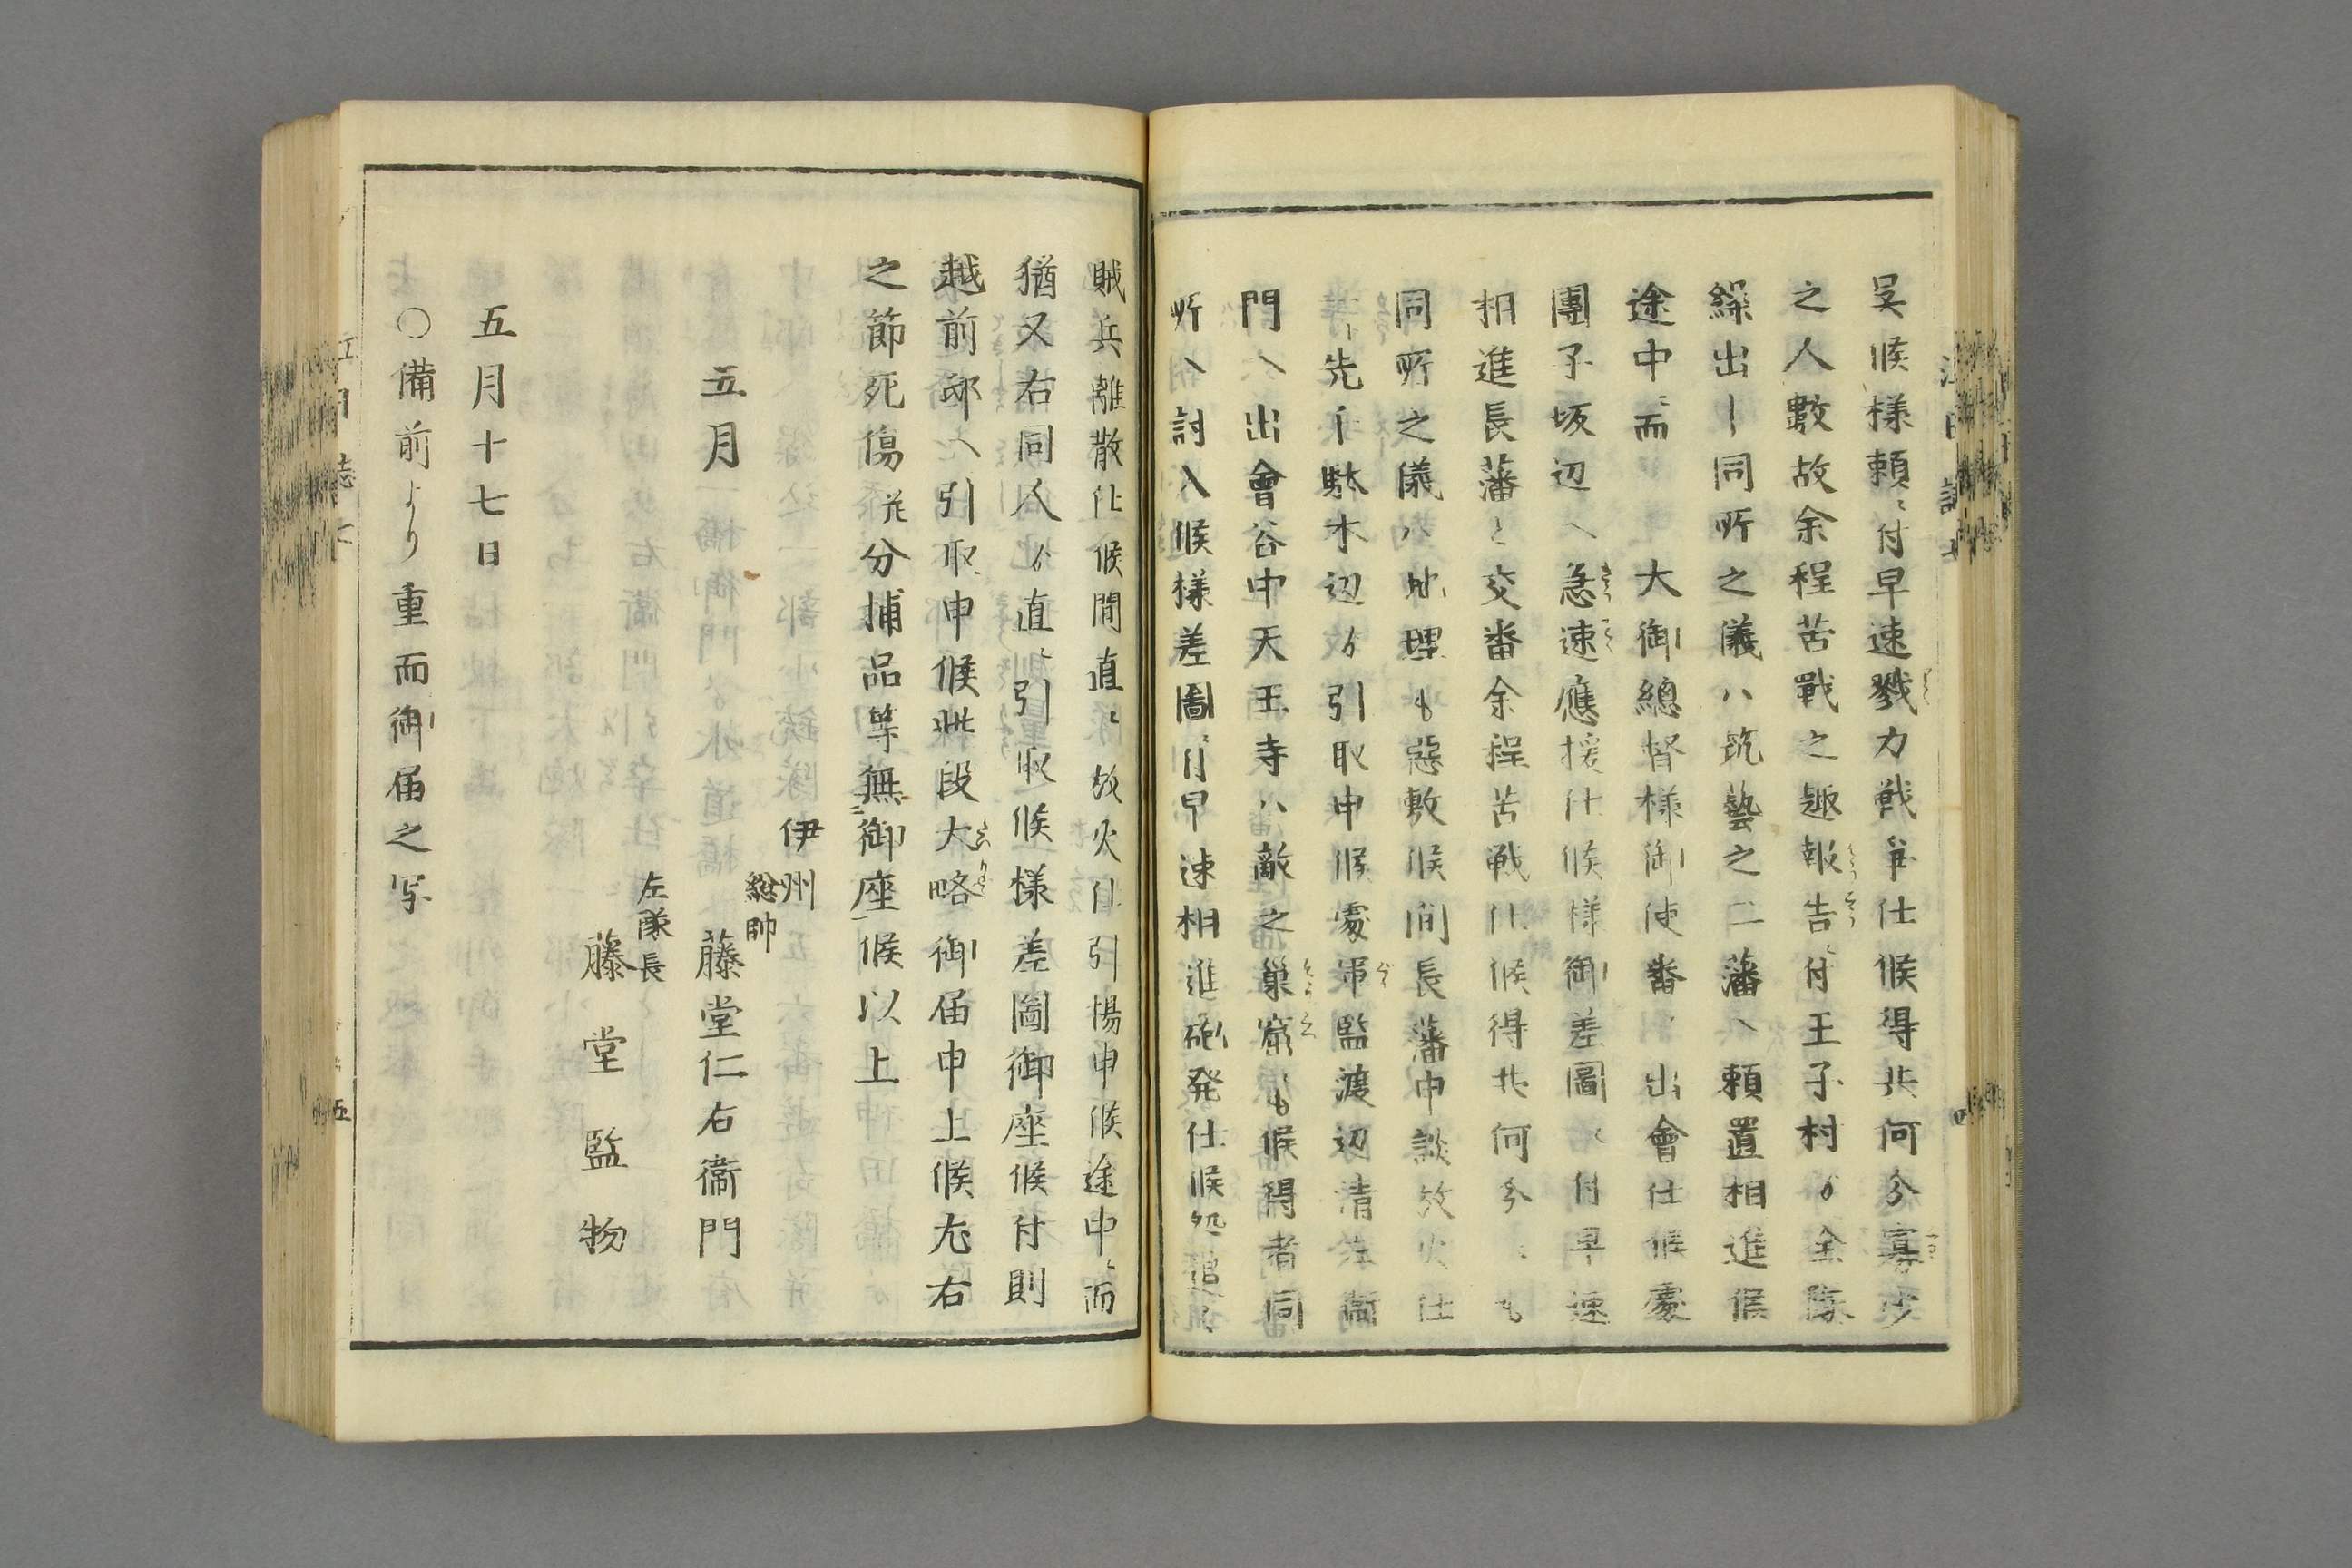 呉候様頼ニ付早速戮力戦争仕候得共何分寡少
之人數故余程苦戰之趣報告ニ付王子村ゟ全隊
繰出し同所之儀ハ筑藝之二藩へ頼置相進候
途中ニ而 大御總督様御使番ニ出會仕候處
團子坂辺へ急速應援仕候様御差圖ニ付早速
相進長藩と交番余程苦戦仕候得共何分ニも
同所之儀ハ地理も惡敷候间長藩申談放火仕
先千駄木辺ゟ引取申候處軍監渡辺清左衛
門へ出會谷中天王寺ハ敵之巣窟も候得者同
所へ討入候様差圖ニ付早速相進砲発仕候処追々
賊兵離散仕候間直ニ放火仕引揚申候途中ニ而
猶又右同人ゟ直ニ引取候様差圖御座候付則
越前邸へ引取申候此段大略御届申上候尤右
之節死傷并分捕品等無御座候以上
五月
伊州
総帥
藤堂仁右衞門
左隊長
藤堂監物
五月十七日
○備前より重而御届之写
五